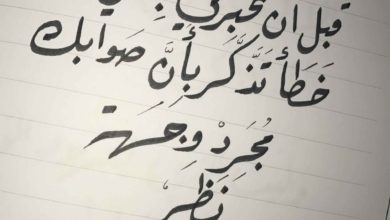 قبل أن تخبرني
خَطَأ تَذَّكر بأنَّ صَوابك
مُجَرِدْ وِجهة
نَظَر